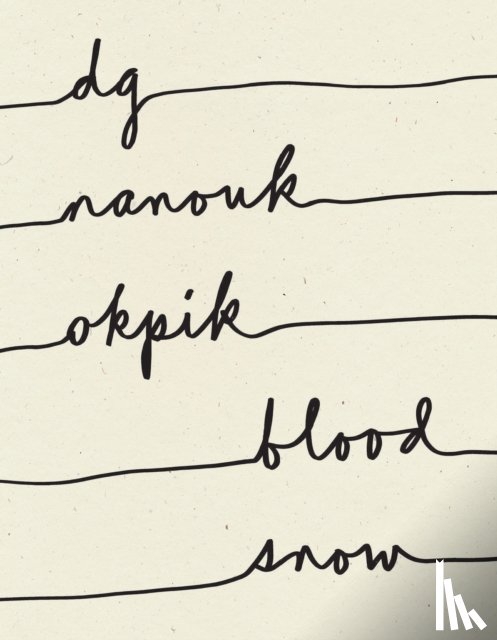 dg
nanouk
okpik
blood
snow